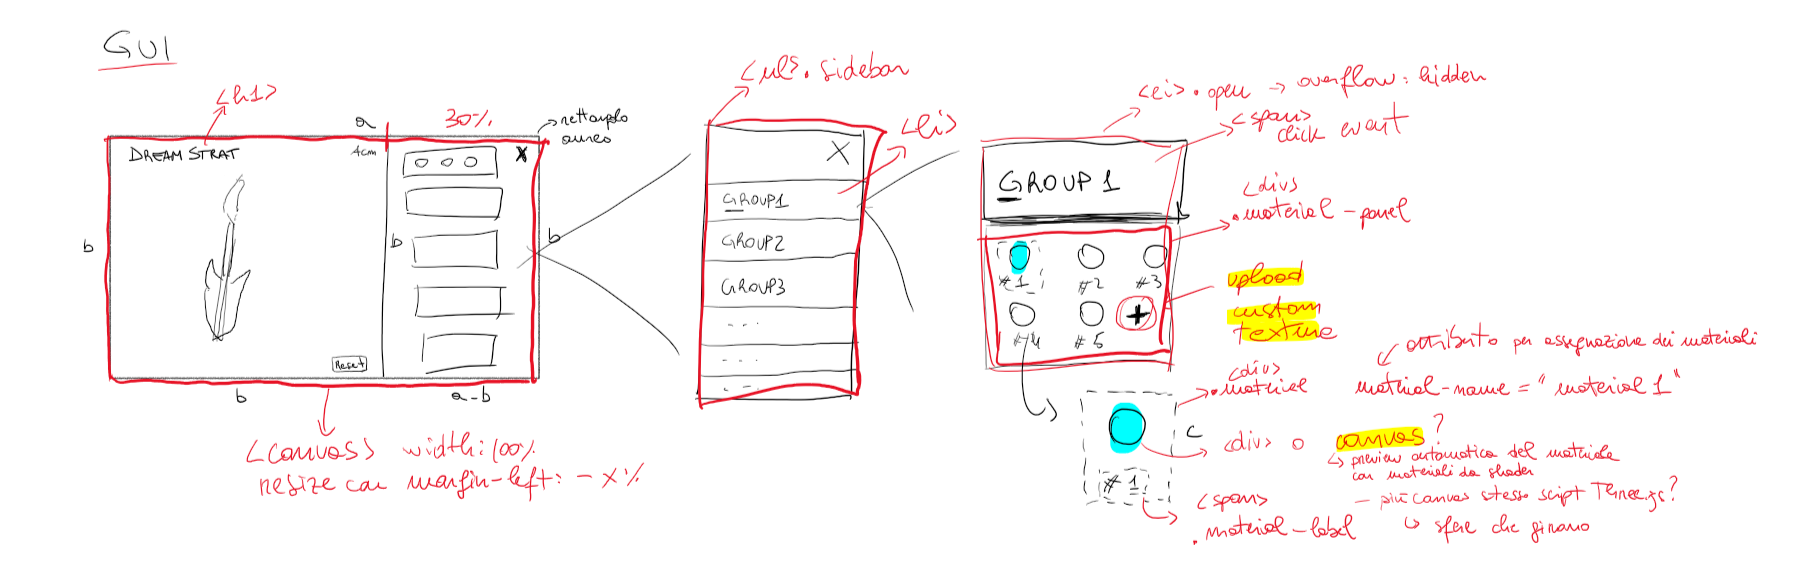 GUI
<h1>
a
30%
rettangolo
aureo
DREAM STRAT
4cm
X
b
b
b
Reset
b
a-b
<canvas> width: 100%
resize con margin-left: -x%
<ul>. sidebar
<li>
X
GROUP1
GROUP2
GROUP3
- - -
- - -
- - -
.open → overflow: hidden
<span>
click event
GROUP 1
<div>
.material-panel
#1
#2
#3
+
#4
#5
upload
custom
texture
attributo per assegnazione dei materiali
material-name = "material 1"
<div>
.material
c
<div> o canvas?
preview automatica del materiale
con materiali da shader
- più canvas stesso script Three.js?
sfere che girano
#1
<span>
.material-label